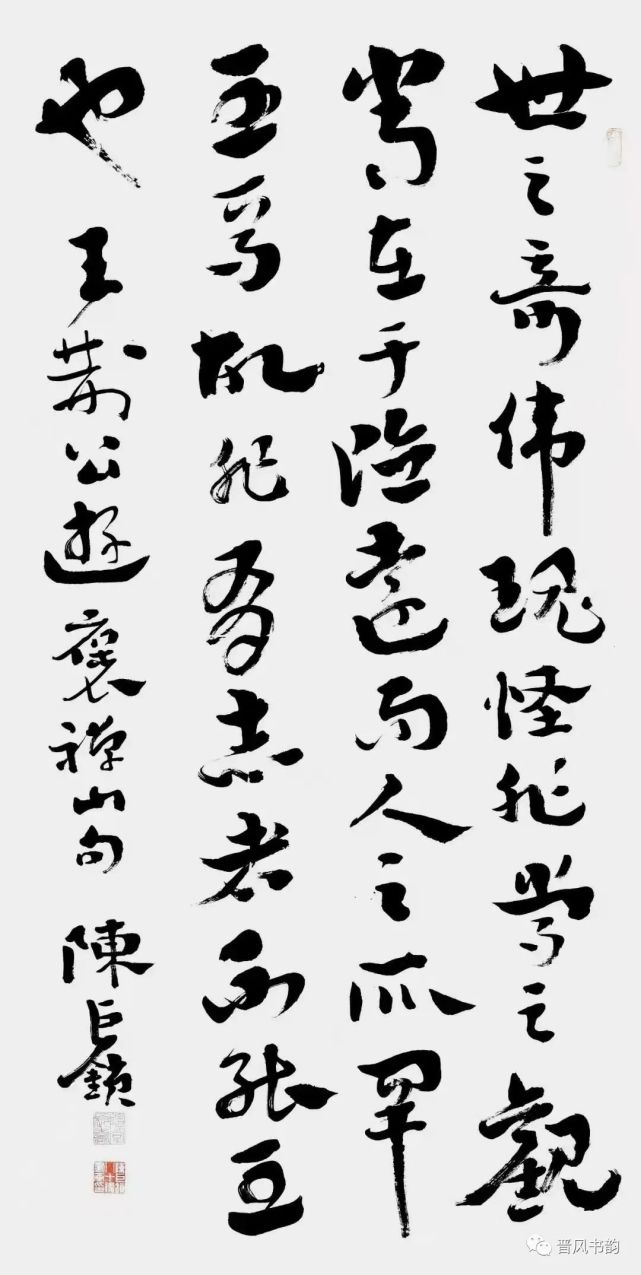 世之奇伟瑰怪非常之觀
常在于險遠而人之所罕
至焉故非有志者不能至
也 王荆公遊褒禅山句 陳巨鎖
晋风书韵